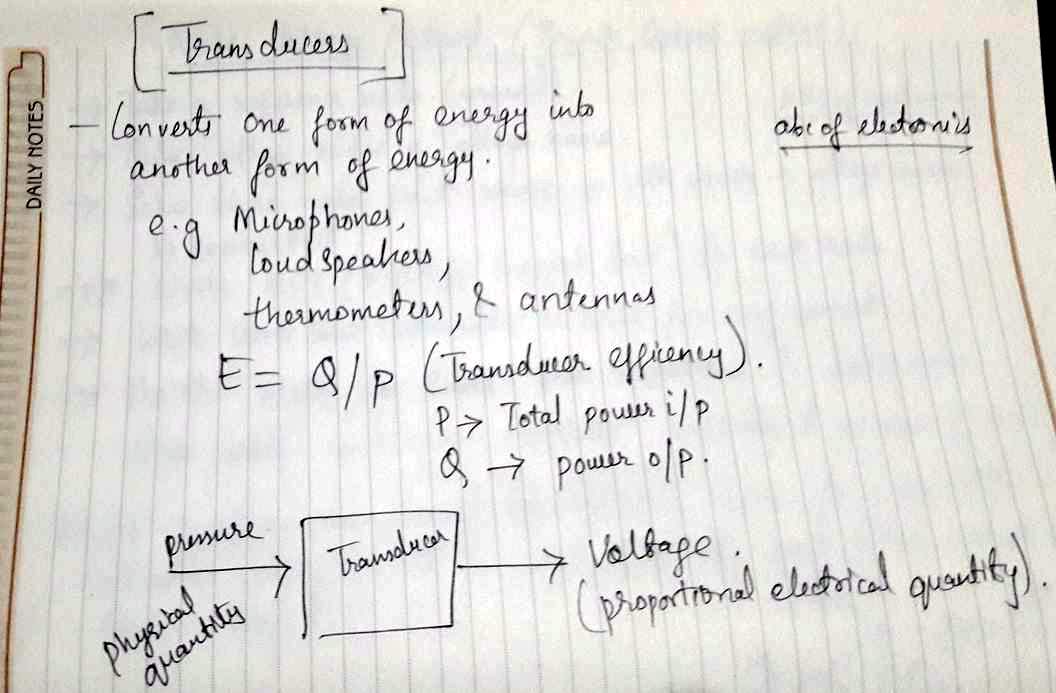 [Transducers]
DAILY NOTES
- Converts one form of energy into
another form of energy.
abc of electronis
e.g Microphones,
loud speakers,
thermometers, & antennas
E = Q/P (Transducer efficency).
P → Total power i/p
Q → power o/p.
pressure
physical
quantity
Transducer
Voltage.
(proportional electrical quantity).